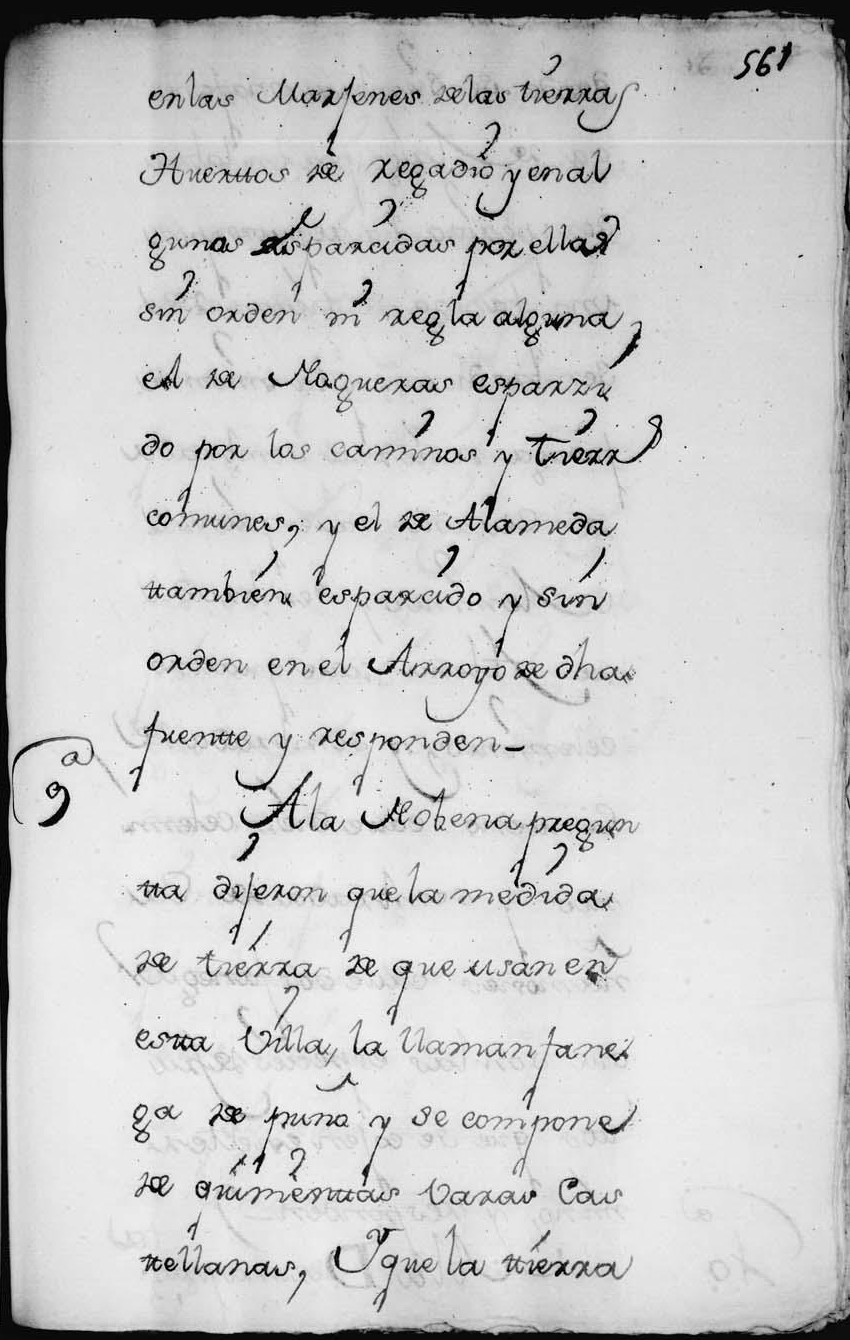 561
en las Marjenes de las tierras
Huertos de regadio y en al
gunas esparcidas por ellas
sin orden ni regla alguna,
el de Nogueras esparzi
do por los caminos y tierr
comunes, y el de Alameda
tambien esparcido y sin
orden en el Arroyo de dha
fuente y responden_
9a
A la Nobena pregun
ta dijeron que la medida
de tierra de que usan en
esta Villa, la llaman fane
ga de puño y se compone
de quinientas varas Cas
tellanas, Y que la tierra